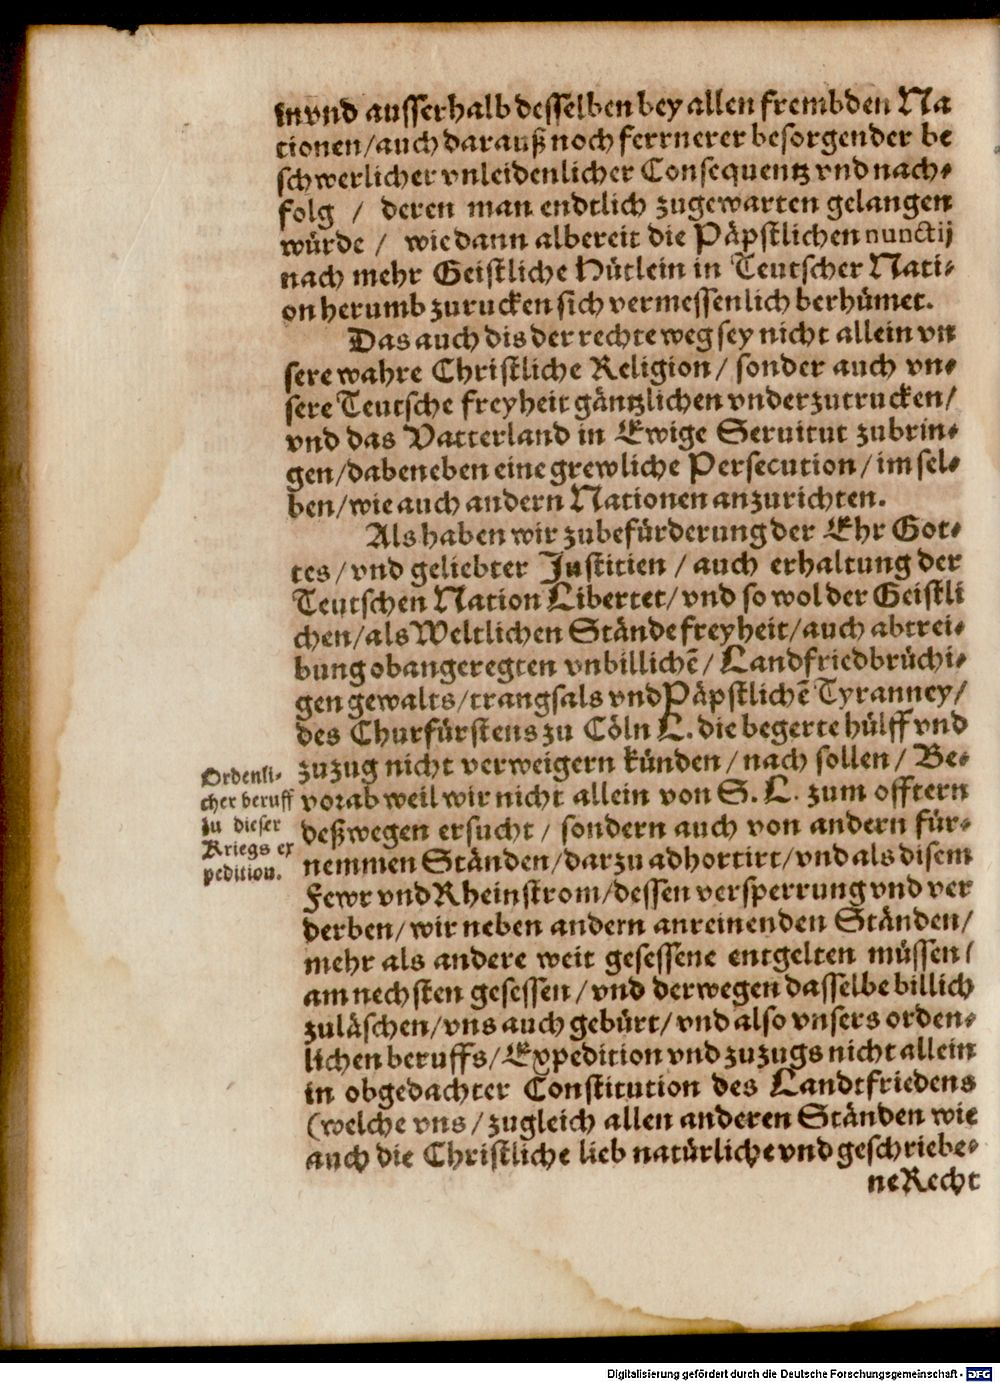 in vnd ausserhalb desselben bey allen frembden Na
tionen/auch darauß noch ferrnerer besorgender be
schwerlicher vnleidenlicher Consequentz vnd nach-
folg / deren man endtlich zugewarten gelangen
würde / wie dann albereit die Päpstlichen nunctij
nach mehr Geistliche Hütlein in Teutscher Nati-
on herumb zurucken sich vermessenlich berhümet.
Das auch dis der rechte weg sey nicht allein vn
sere wahre Christliche Religion/ sonder auch vn-
sere Teutsche freyheit gäntzlichen vnderzutrucken/
vnd das Vatterland in Ewige Seruitut zubrin-
gen/dabeneben eine grewliche Persecution/im sel-
ben/wie auch andern Nationen anzurichten.
Als haben wir zubefürderung der Ehr Got-
tes/vnd geliebter Justitien / auch erhaltung der
Teutschen Nation Libertet/vnd so wol der Geistli
chen/als Weltlichen Stände freyheit/auch abtrei-
bung obangeregten vnbillichẽ/ Landfriedbrüchi-
gen gewalts/trangsals vnd Päpstlichẽ Tyranney/
des Churfürstens zu Cöln L. die begerte hülff vnd
zuzug nicht verweigern künden/ nach sollen/ Be-
vorab weil wir nicht allein von S. L. zum offtern
deßwegen ersucht/ sondern auch von andern für-
nemmen Ständen/darzu adhortirt/vnd als disem
Fewr vnd Rheinstrom/dessen versperrung vnd ver
derben/wir neben andern anreinenden Ständen/
mehr als andere weit gesessene entgelten müssen/
am nechsten gesessen/vnd derwegen dasselbe billich
zuläschen/vns auch gebürt/vnd also vnsers orden-
lichen beruffs/Expedition vnd zuzugs nicht allein
in obgedachter Constitution des Landtfriedens
(welche vns/zugleich allen anderen Ständen wie
auch die Christliche lieb natürliche vnd geschriebe-
ne Recht
Ordenli-
cher beruff
zu dieser
Kriegs ex
pedition.
Digitalisierung gefördert durch die Deutsche Forschungsgemeinschaft - DFG